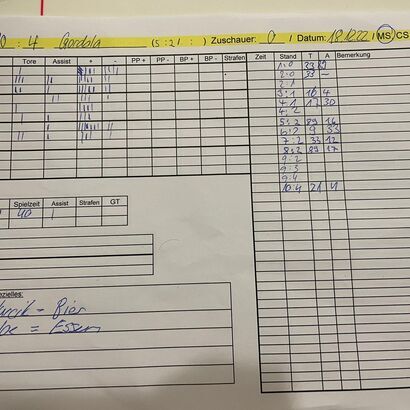 0 : 4 Gordola (5 : 2 / : ) Zuschauer: 0 / Datum: 18.12.22 / MS CS
Tore Assist + - PP + PP - BP + BP - Strafen Zeit Stand T A Bemerkung
1:0 33 89
2:0 33 –
2:1
3:1 16 4
4:1 17 30
4:2
5:2 89 16
6:2 9 33
7:2 33 12
8:2 89 17
9:2
9:3
9:4
10:4 21 4
Spielzeit Assist Strafen GT
40 1
zielles:
– Bier
= Essen